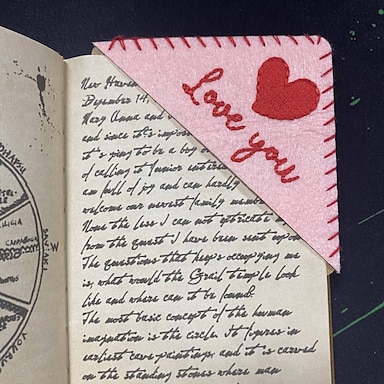 Love you
New Haven
December 14,
Mary Anna and
and since it's impos
it's going to be a boy
of calling it Junior
am full of joy and can hardly
welcome our newest family member
None the less I can not
from the quest I have been sent upon
The questions that keeps occupying me
is, what would the Grail temple look
like and where can it be found.
The most basic concept of the human
imagination is the circle. It figures in
earliest cave paintings, and it is carved
on the standing stones where man